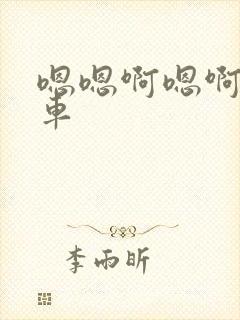 嗯嗯啊嗯啊
車
李雨昕